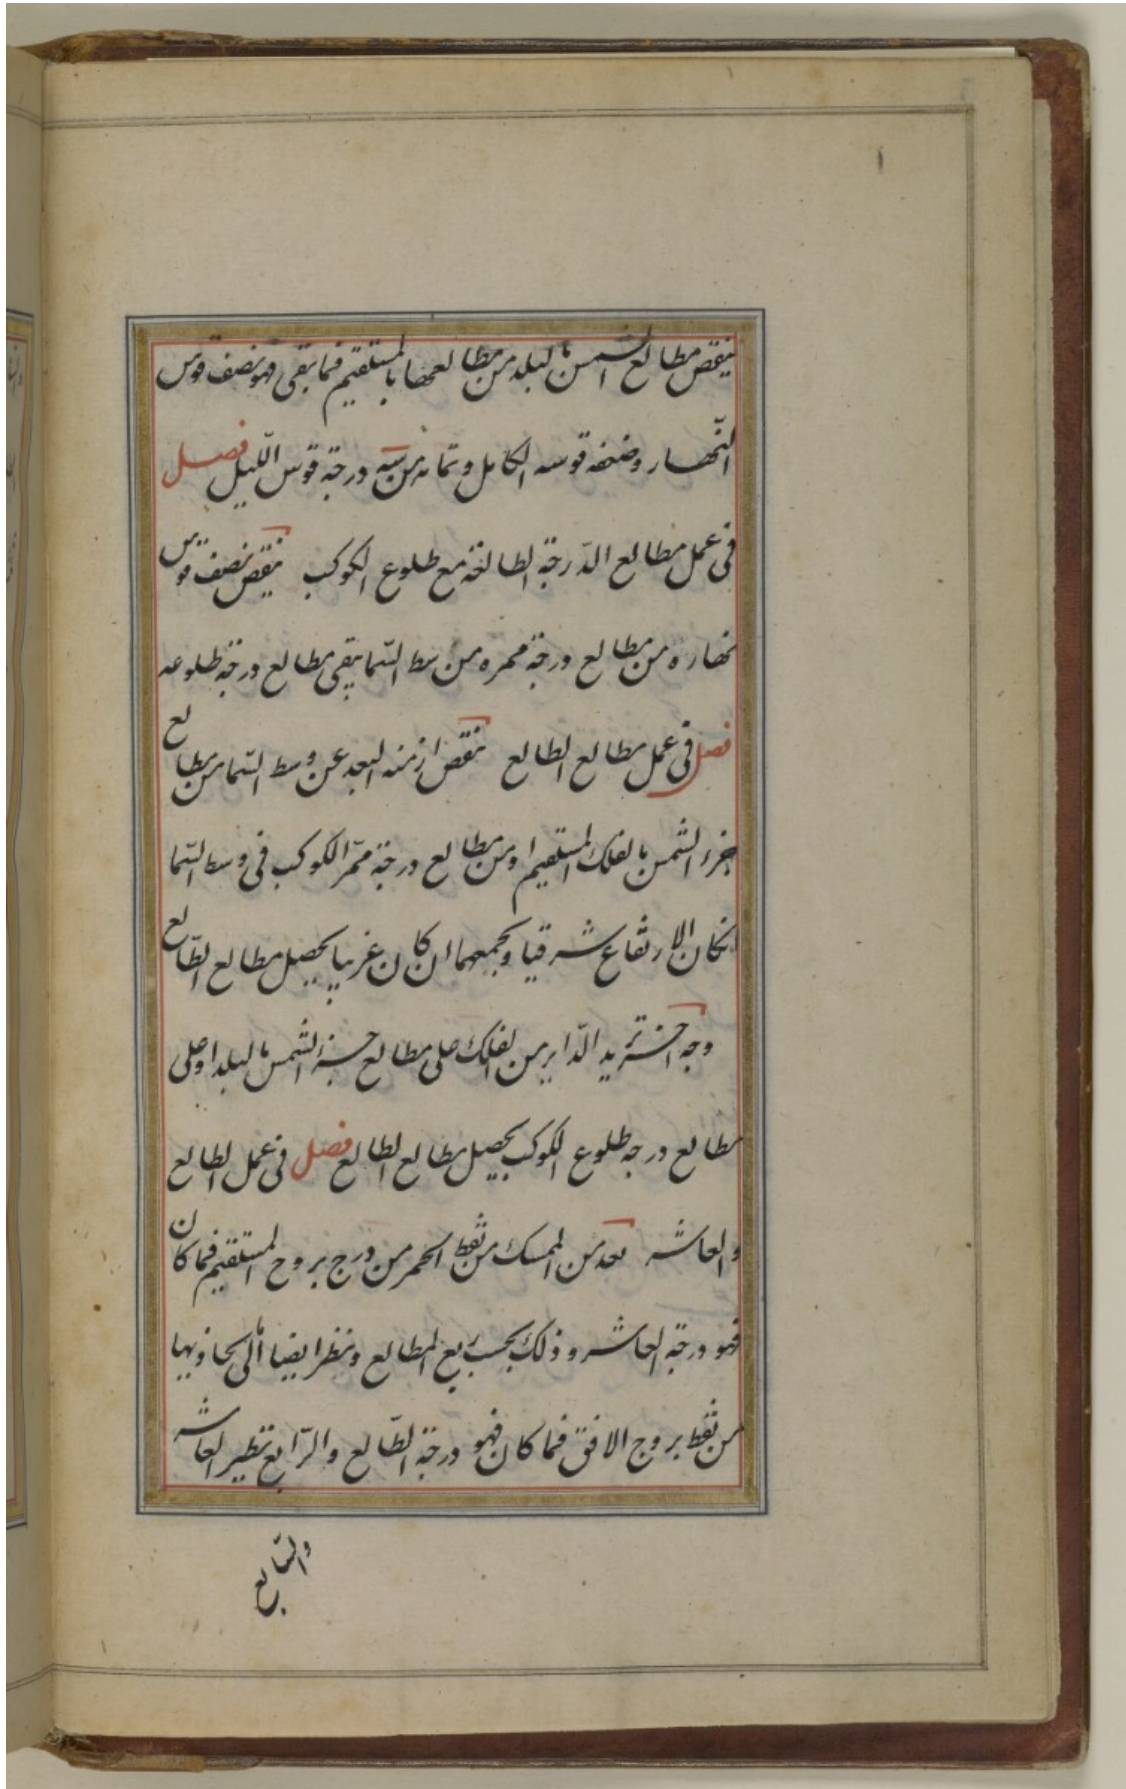 ينقص مطالع الشمس بالبلد من مطالعها بالمستقيم فما بقى فهو نصف قوس
النّهار وضعفه قوسه الكامل وتمامه من شسه درجة قوس اللّيل فصل
فى عمل مطالع الدّرجة الطالعة مع طلوع الكوكب ننقص نصف قوس
نهاره من مطالع درجة ممره من سط السّما يبقى مطالع درجة طلوعه
فصل فى عمل مطالع الطالع ننقص ازمنه البعد عن وسط السّما من مطالع
جزء الشمس بالفلك المستقيم او من مطالع درجة ممرّ الكوكب فى وسط السّما
انكان الارتفاع شرقيا ونجمعهما ان كان غربيا يحصل مطالع الطّالع
وجه اخر نزيد الدّاير من الفلك على مطالع جزء الشمس بالبلد او على
مطالع درجه طلوع الكوكب يحصل مطالع الطالع فصل فى عمل الطالع
والعاشر نعد من الممسك من نقط الحمر من درج بروج المستقيم فما كان
فهو درجة العاشر وذلك بحسب ربع المطالع وننظر ايضا الى ما يحاذيها
من نقط بروج الافق فما كان فهو درجة الطّالع والرّابع نظير العاشر
والسّابع